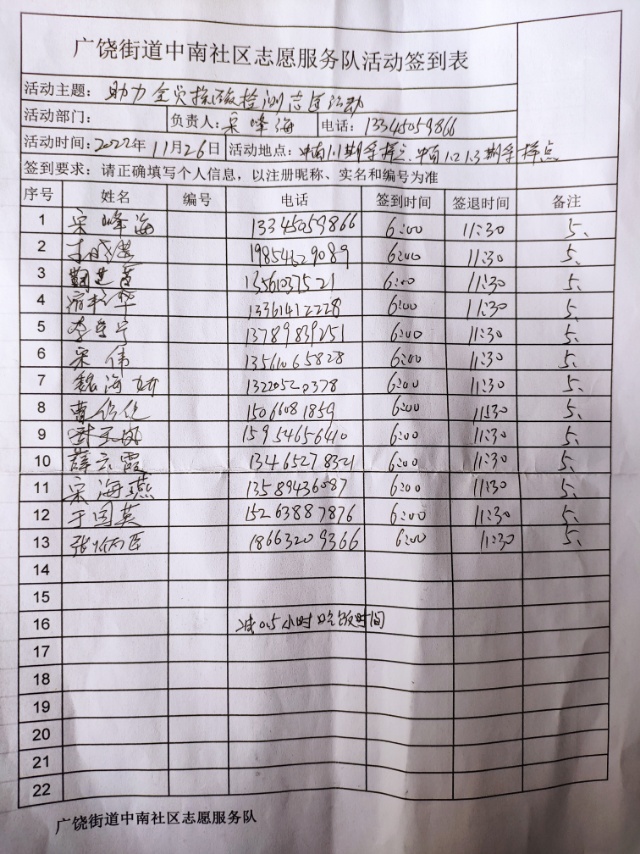 广饶街道中南社区志愿服务队活动签到表
活动主题：助力全员核酸检测志愿活动
活动部门： 负责人：宋峰海 电话：13345059866
活动时间：2022年11月26日 活动地点：中南1.1期采样点、中南1.2 1.3期采样点
签到要求：请正确填写个人信息，以注册昵称、实名和编号为准
序号 姓名 编号 电话 签到时间 签退时间 备注
1 宋峰海 13345059866 6:00 11:30 5、
2 19854629089 6:00 11:30 5、
3 13561037521 6:00 11:30 5、
4 13361412228 6:00 11:30 5、
5 13789839251 6:00 11:30 5、
6 宋伟 13561065828 6:00 11:30 5、
7 魏海娇 13220520378 6:00 11:30 5、
8 15066081859 6:00 11:30 5、
9 15954656410 6:00 11:30 5、
10 薛云霞 13465278321 6:00 11:30 5、
11 宋海燕 13589436087 6:00 11:30 5、
12 于国英 15263887876 6:00 11:30 5、
13 18663209366 6:00 11:30 5、
14
15
16 减0.5小时吃饭时间
17
18
19
20
21
22
广饶街道中南社区志愿服务队